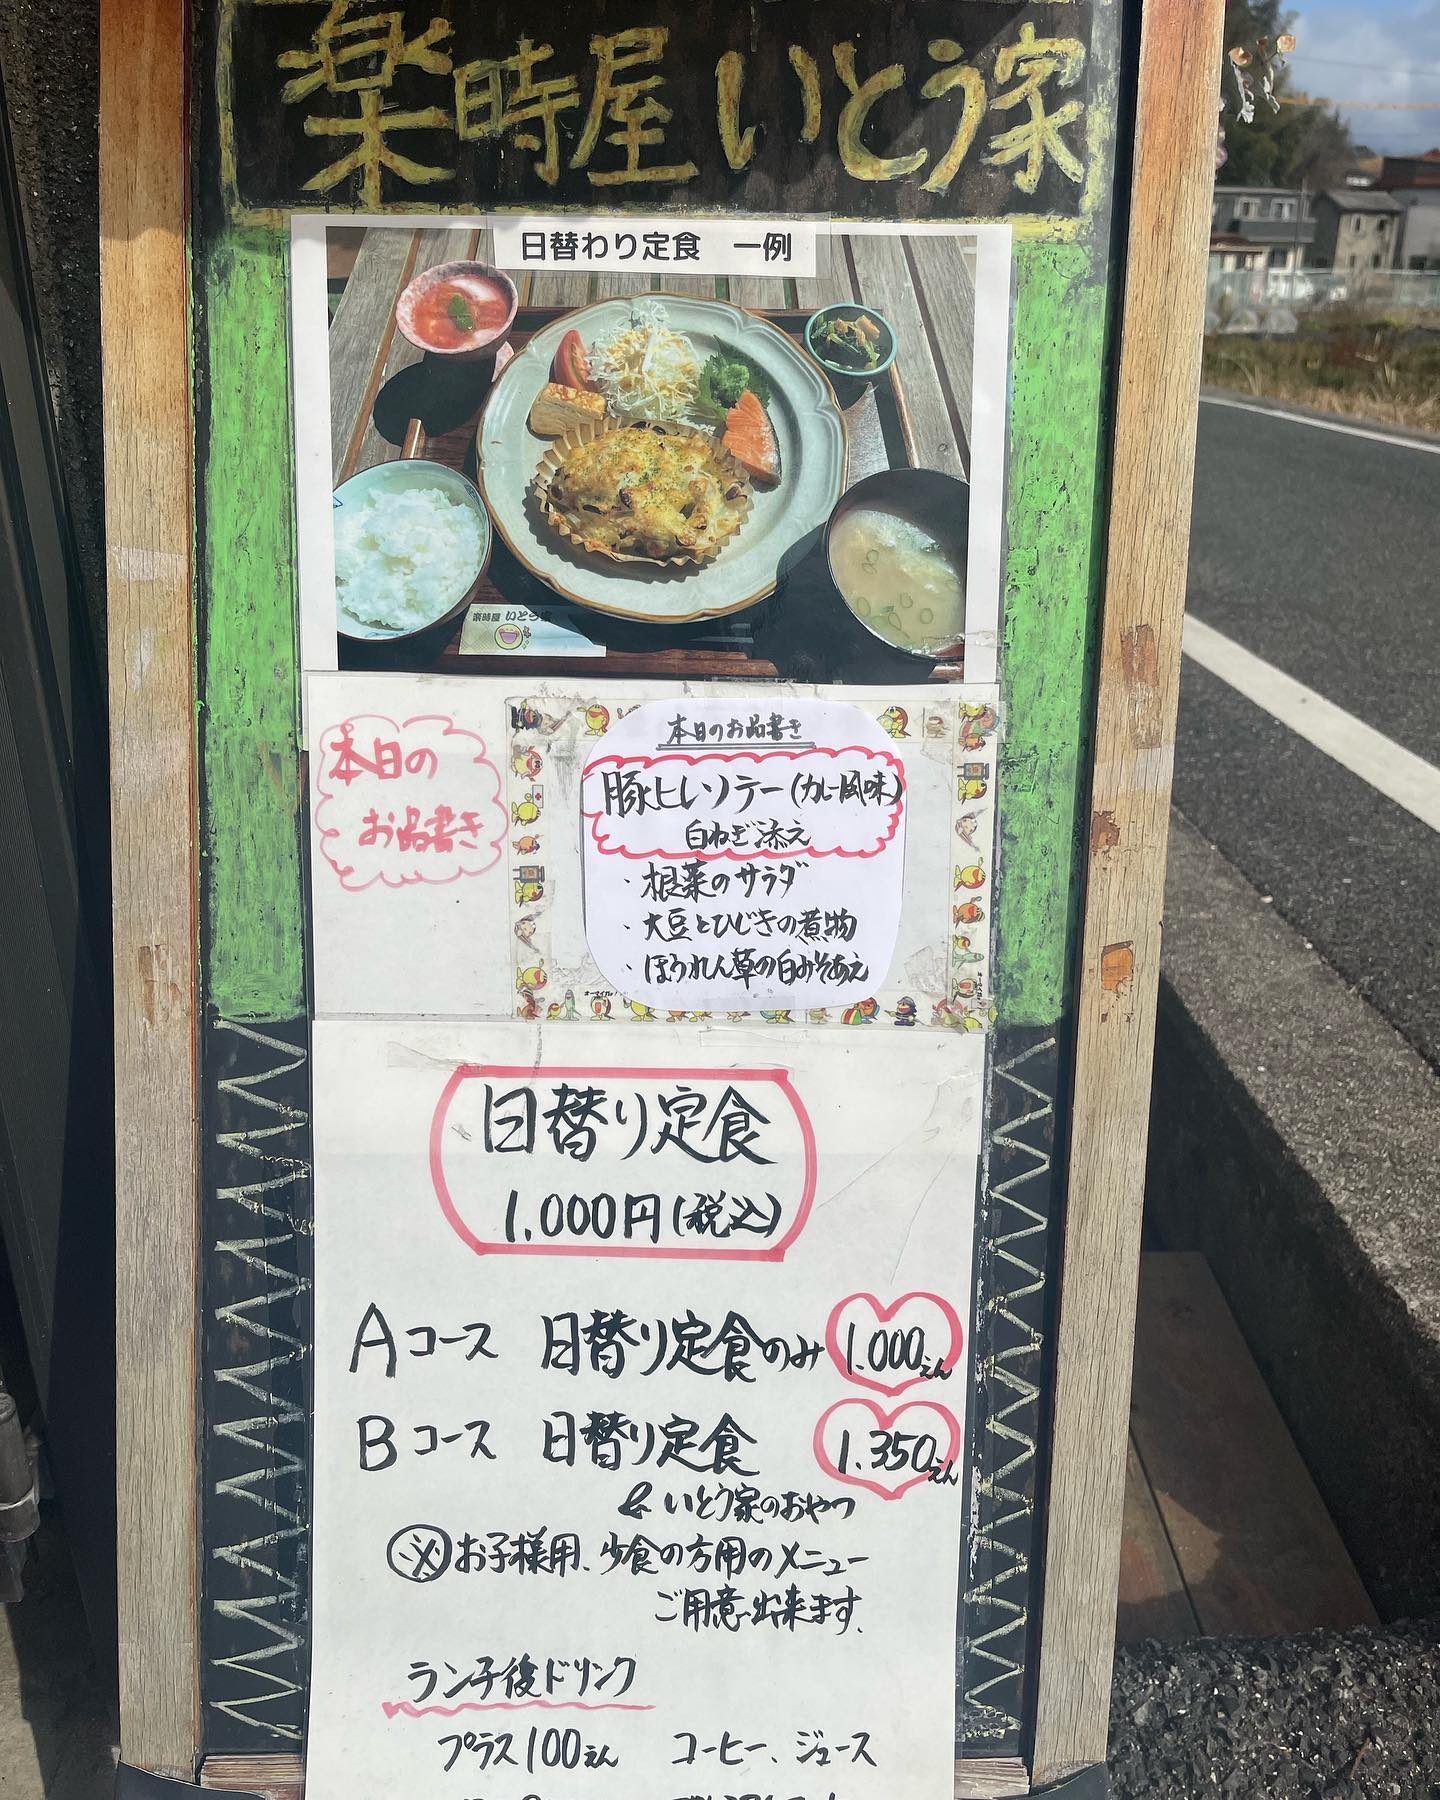 楽時屋 いとう家
日替わり定食 一例
楽時屋 いとう家
本日の
お品書き
本日のお品書き
豚ヒレソテー(カレー風味)
白ねぎ添え
・根菜のサラダ
・大豆とひじきの煮物
・ほうれん草の白みそあえ
日替り定食
1.000円(税込)
Aコース 日替り定食のみ 1.000えん
Bコース 日替り定食 1.350えん
& いとう家のおやつ
※お子様用、少食の方用のメニュー
ご用意出来ます。
ランチ後ドリンク
プラス100えん コーヒー、ジュース